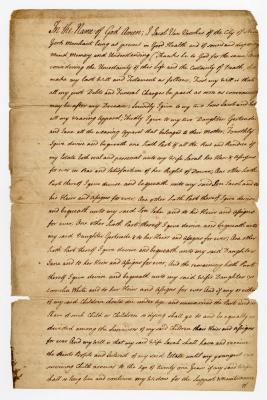 In the Name of God Amen, I Jacob Van                 of the City of New
York Merchant being at present in Good Health and of sound and disposing
Mind Memory and Understanding (Thanks be to God for the same)
considering the Uncertainty of this Life and the Certainty of Death, do
make my Last Will and Testament as follows, First my Will is that
all my just Debts and Funeral Charges be paid as soon as convenient
may be after my Decease; Secondly I give to my two Sons Jacob and
all my wearing Apparel; Thirdly I give to my two Daughters Gertrude
and Sara all the wearing Apparel that belonged to their Mother, Fourthly
I give devise and bequeath one sixth Part of all the Rest and Residue of
my Estate both real and personal unto my Wife Sarah her Heirs & Assigns
for ever in Bar and Satisfaction of her Right of Dower; One other sixth
Part thereof I give devise and bequeath unto my said Son Jacob and to
his Heirs and Assigns for ever, One other sixth Part thereof I give devise
and bequeath unto my said Son John and to his Heirs and Assigns
for ever, One other sixth Part thereof I give devise and bequeath unto
my said Daughter Gertrude & to her Heirs and Assigns for ever; One other
sixth Part thereof I give devise and bequeath unto my said Daughter
Sara and to her Heirs and Assigns for ever, And the remaining sixth Part
thereof I give devise and bequeath unto my said Wife's Daughter
White and to her Heirs and Assigns for ever And if any or either
of my said Children should die under Age and unmarried the Part and
Share of such Child or Children so dying shall go to and be equally
divided among the Survivors of my said Children their Heirs and Assigns
for ever And my Will is that my said Wife Sarah shall have and receive
the Rents Profits and Interest of my said Estate until my youngest
surviving Child arrives to the Age of twenty one Years if my said Wife
shall so long live and continue my Widow for the Support & Maintenance
of